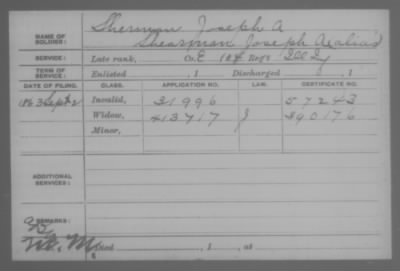 NAME OF SOLDIER: Sherman Joseph A
Shearman Joseph A (alias)
SERVICE: Late rank, Co. E 104 Reg't Ill Inf
TERM OF SERVICE: Enlisted , 1 Discharged , 1
DATE OF FILING. CLASS. APPLICATION NO. LAW. CERTIFICATE NO.
1863 Sept 2 Invalid, 31996 57243
Widow, 413717 J 390176
Minor,
ADDITIONAL SERVICES:
REMARKS:
Died , 1 , at